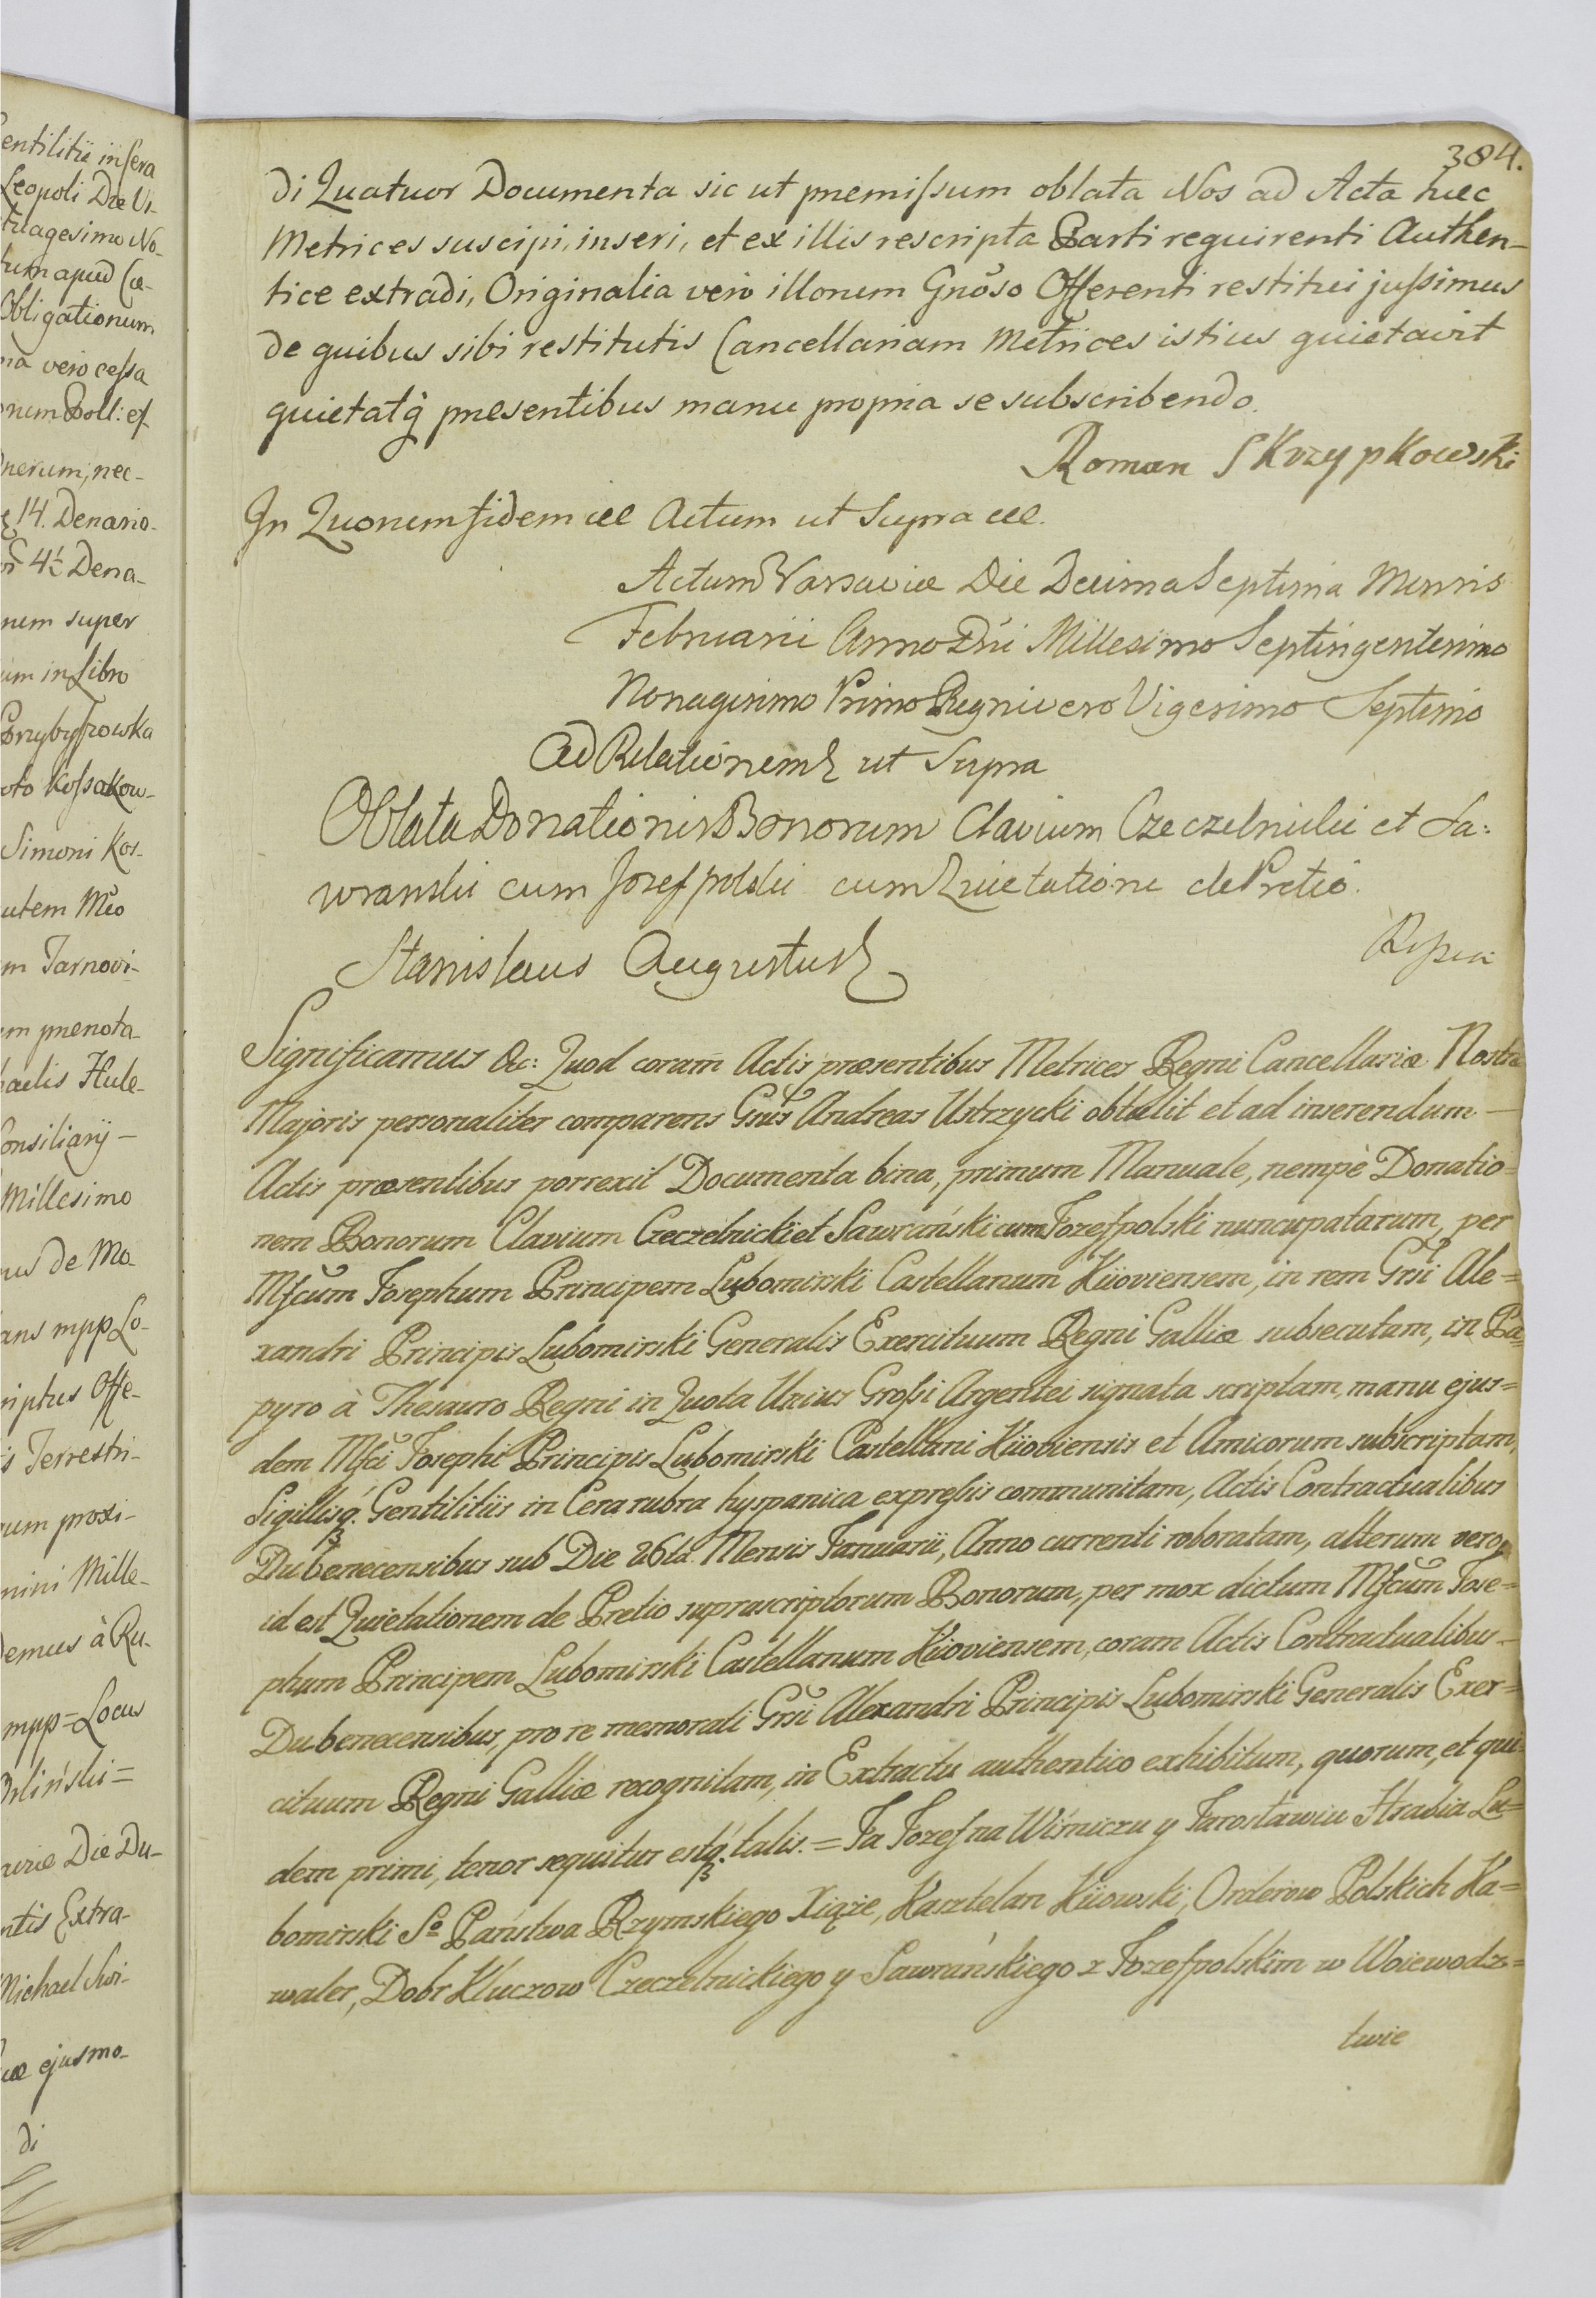 entilitii insera
Leopoli Die Vi-
tuagesimo No-
tum apud Cae-
Obligationum
na vero cessa
onum Poll: et
nerum, nec-
14. Denario-
4½ Dena-
nem super
um in Libro
Przybyszowska
oto Kossakow-
Simoni Kos-
utem Mco
m Tarnovi-
em praenota-
haelis Hule-
Consiliarij -
Millesimo
us de Mo-
ans mpp Lo-
riptus Offe-
is Terrestri-
um proxi-
mini Mille-
demus à Ru-
mpp = Locus
Biliński =
viae Die Du-
ntis Extra-
Michael Swi-
ae ejusmo-
di
384.
di Quatuor Documenta sic ut praemissum oblata Nos ad Acta haec
Metrices suscipi, inseri, et ex illis rescripta Parti requirenti Authen-
tice extradi, Originalia vero illorum Gnoso Offerenti restitui jussimus
de quibus sibi restitutis Cancellariam Metrices istius quietavit
quietatq́ praesentibus manu propria se subscribendo.
Roman Skrzypkowski
In Quorum fidem &c Actum ut Supra &c.
Actum Varsaviae Die Decima Septima Mensis
Februarii Anno Dni Millesimo Septingentesimo
Nonagesimo Primo Regni vero Vigesimo Septimo
Ad Relationem ut Supra
Oblata Donationis Bonorum Clavium Czeczelnicki et Sa:
wranski cum Jozefpolski cum Quietatione de Pretio.
Stanislaus Augustus
Significamus &c: Quod coram Actis praesentibus Metrices Regni Cancellariae Nostrae
Majoris personaliter comparens Gsus Andreas Ustrzycki obtulit et ad inserendum -
Actis praesentibus porrexit Documenta bina, primum Manuale, nempè Donatio=
nem Bonorum Clavium Czeczelnicki et Sawrański cum Jozefpolski nuncupatarum, per
Mfcum Josephum Principem Lubomirski Castellanum Kiioviensem, in rem Grsi Ale=
xandri Principis Lubomirski Generalis Exercituum Regni Galliae subsecutam, in Pa=
pyro à Thesauro Regni in Quota Unius Grossi Argentei signata scriptam, manu ejus=
dem Mfci Josephi Principis Lubomirski Castellani Kiioviensis et Amicorum subscriptam,
Sigillisq́. Gentilitiis in Cera rubra hyspanica expressis communitam, Actis Contractualibus
Dubenecensibus sub Die 26ta Mensis Januarii, Anno currenti roboratam, alterum vero,
id est Quietationem de Pretio suprascriptorum Bonorum, per mox dictum Mfcum Jose=
phum Principem Lubomirski Castellanum Kiioviensem, coram Actis Contractualibus -
Dubenecensibus, pro re memorati Grsi Alexandri Principis Lubomirski Generalis Exer=
cituum Regni Galliae recognitam, in Extractu authentico exhibitum, quorum, et qui=
dem primi, tenor sequitur estq́. talis. = Ja Jozef na Wiśniczu y Jarosławiu Hrabia Lu=
bomirski So Państwa Rzymskiego Xiąże, Kasztelan Kiiowski, Orderow Polskich Ka=
waler, Dobr Kluczow Czeczelnickiego y Sawrańskiego z Jozefpolskim w Woiewodz=
twie